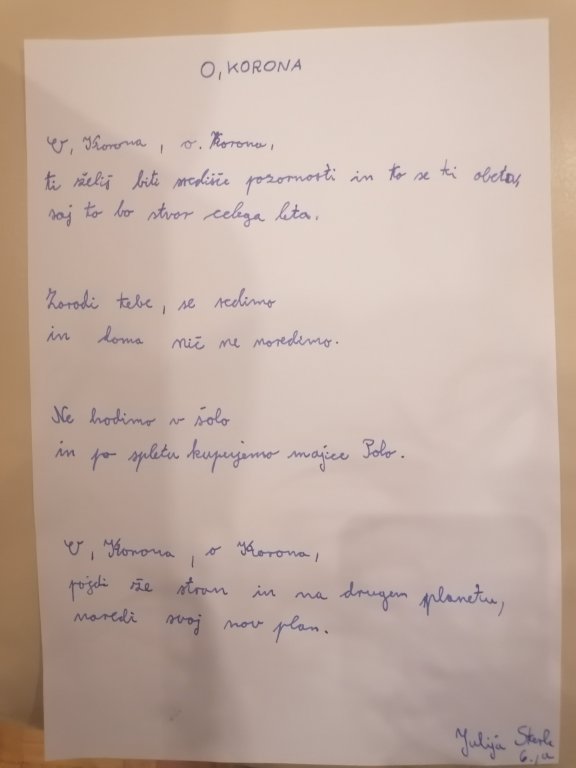 O, KORONA
O, Korona, o. Korona,
ti želiš biti središče pozornosti in to se ti obeta,
saj to bo stvar celega leta.
Zaradi tebe, se redimo
in doma nič ne naredimo.
Ne hodimo v šolo
in po spletu kupujemo majice Polo.
O, Korona, o Korona,
pojdi že stran in na drugem planetu,
naredi svoj nov plan.
Julija
6., a